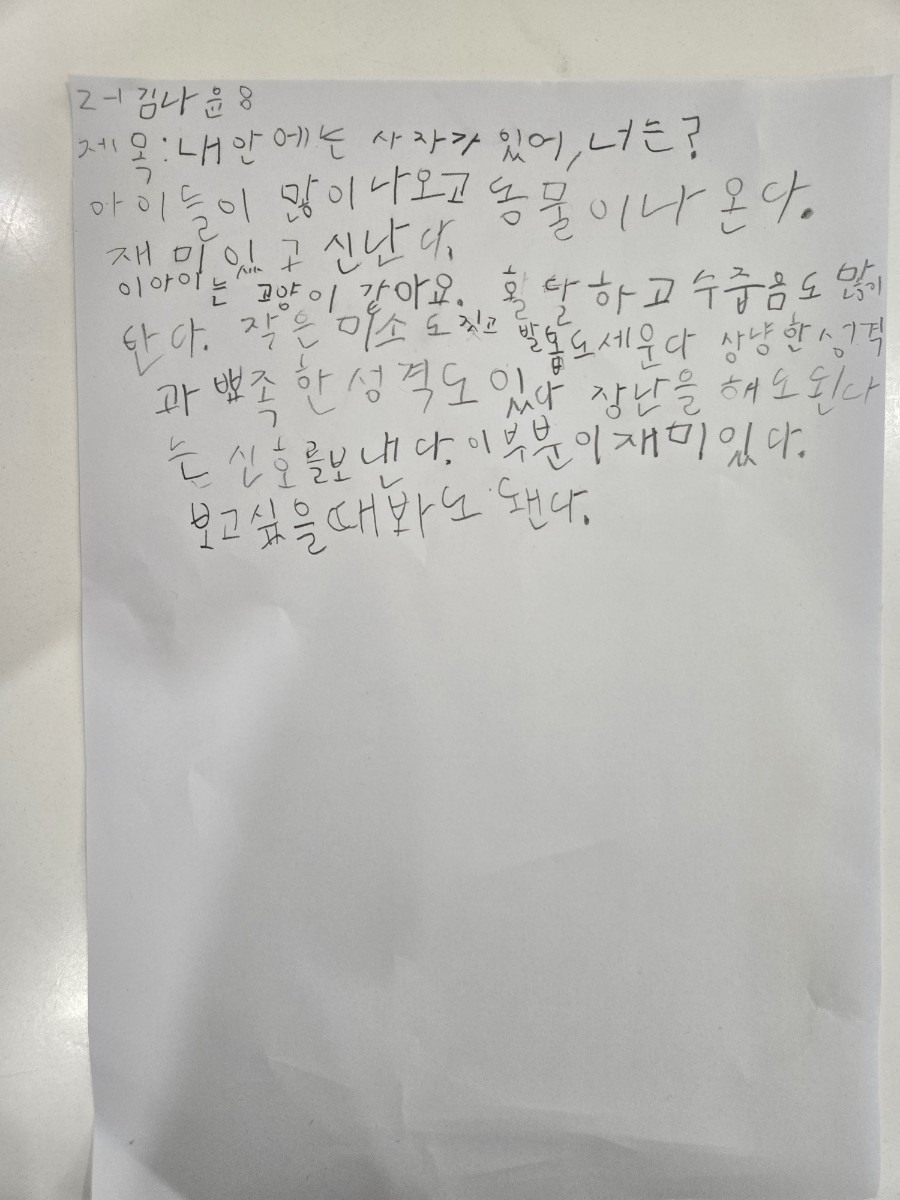 2-1 김나윤 8
제목: 내 안에는 사자가 있어, 너는?
아이들이 많이 나오고 동물이 나온다.
재미있고 신난다.
이 아이는 고양이 같아요. 활달하고 수줍음도 많기
안다. 작은 미소도 짓고 발톱도 세운다 상냥한 성격
과 뾰족한 성격도 있다 장난을 해도 된다
는 신호를 보낸다. 이 부분이 재미있다.
보고 싶을 때 봐도 됀다.